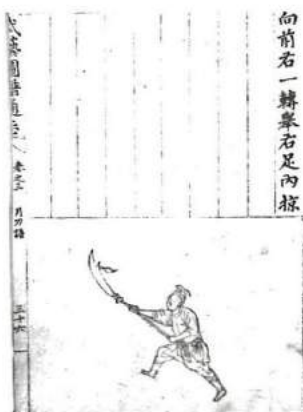 向前右一轉舉右足內掠
武藝圖譜通志 卷之三 月刀譜 三十六